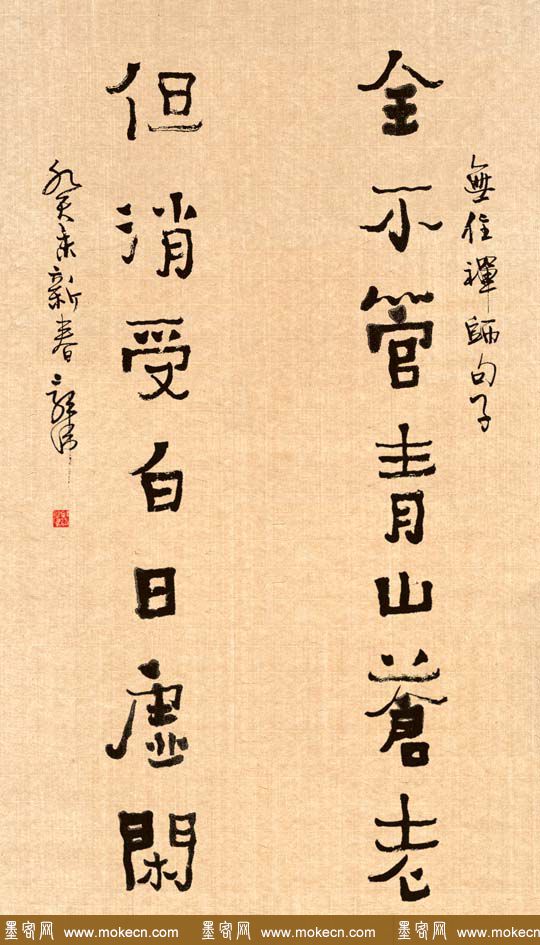 無住禪師句子
全不管青山蒼老
但消受白日虛閑
癸未新春
墨客网 www.mokecn.com 墨客网 www.mokecn.com 墨客网 www.mokecn.com